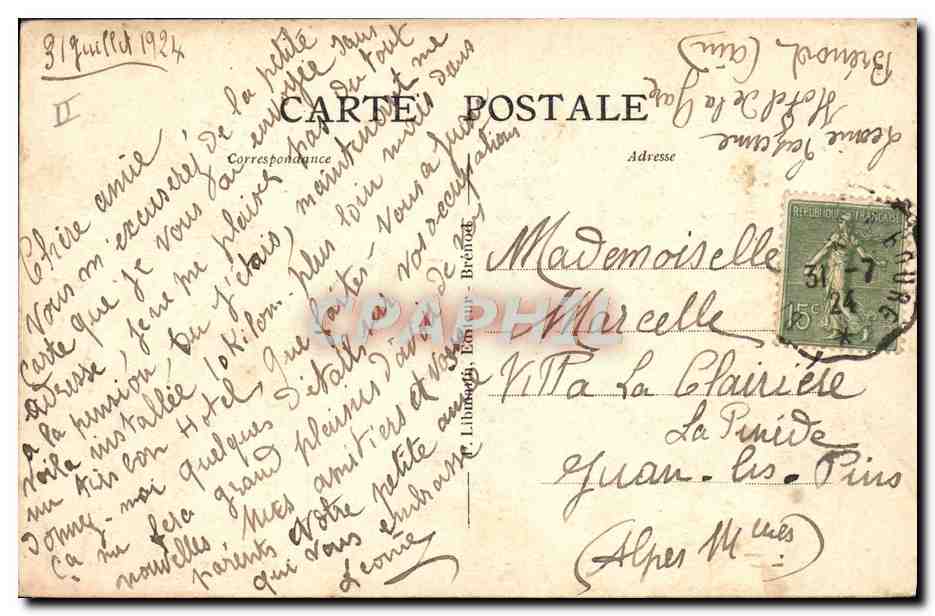 31 Juillet 1924
II
CARTE POSTALE
Correspondance
Adresse
Chère amie
Vous m'excuserez de la petite
Carte que je vous ai envoyée sans
adresse, je ne me plaires pas du tout
a la pension, ou j'étais, maintenant me
voila installée 10 Kilom. plus loin mais dans
un très bon Hotel, que faites-vous a Juan
donnez-moi quelques détails sur vos occupations
ça me fera grand plaisir d'avoir de vos
nouvelles Mes amitiers et vos
parents Votre petite amie
qui vous embrasse
Léonie
Léonie
Hotel de la Gare
Brénod (Ain)
Editeur - Brénod
REPUBLIQUE FRANÇAISE
15c
31 -7
24
*
Mademoiselle
Marcelle
Villa La Clairière
La Pinède
Juan-les-Pins
(Alpes Mmes)
CPAPHIL